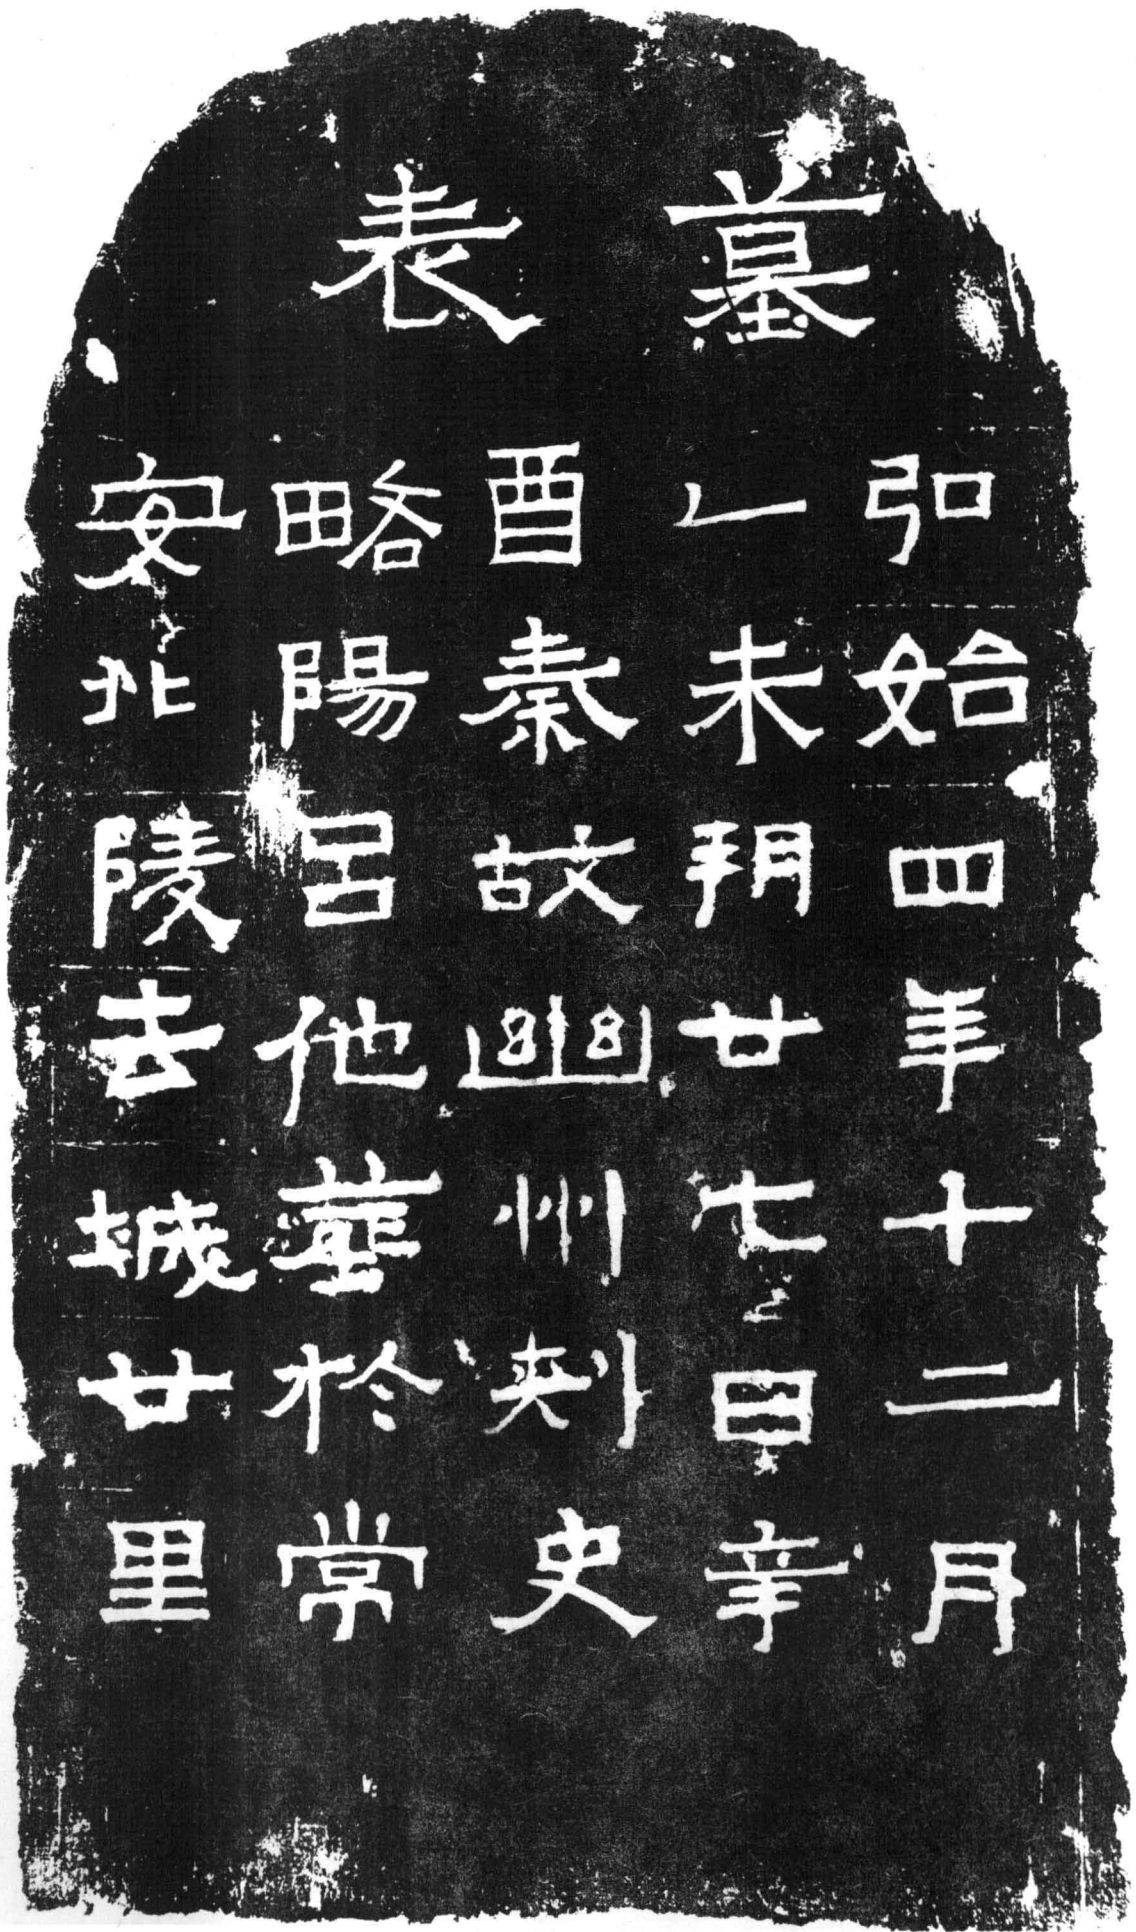 墓表
弘始四年十二月
乚未朔廿七日辛
酉秦故幽州刺史
略陽呂他葬於常
安北陵去城廿里